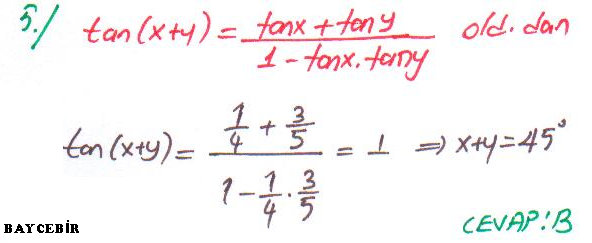 5./ tan(x+y) = tanx + tany / 1 - tanx.tany old. dan
tan(x+y) = 1/4 + 3/5 / 1 - 1/4 . 3/5 = 1 ⇒ x+y = 45°
BAYCEBİR CEVAP: B